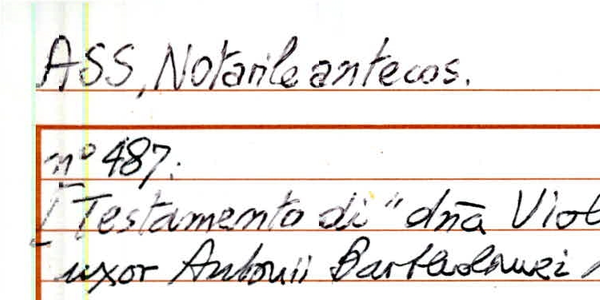 ASS, Notarile antecos.
n° 487:
[Testamento di "dña Viol
uxor Antonii Bartholomei